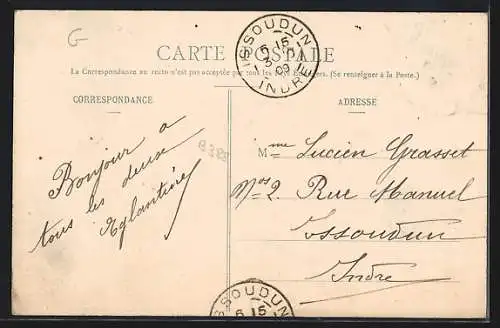 G
CARTE POSTALE
La Correspondance au recto n'est pas acceptée par tous les Pays Étrangers. (Se renseigner à la Poste.)
ISSOUDUN
6 15
3
09
INDRE
CORRESPONDANCE
Bonjour a
tous les deux
Eglantine
ADRESSE
Mme Lucien Grasset
No 2 Rue Manuel
Issoudun
Indre
ISSOUDUN
6 15